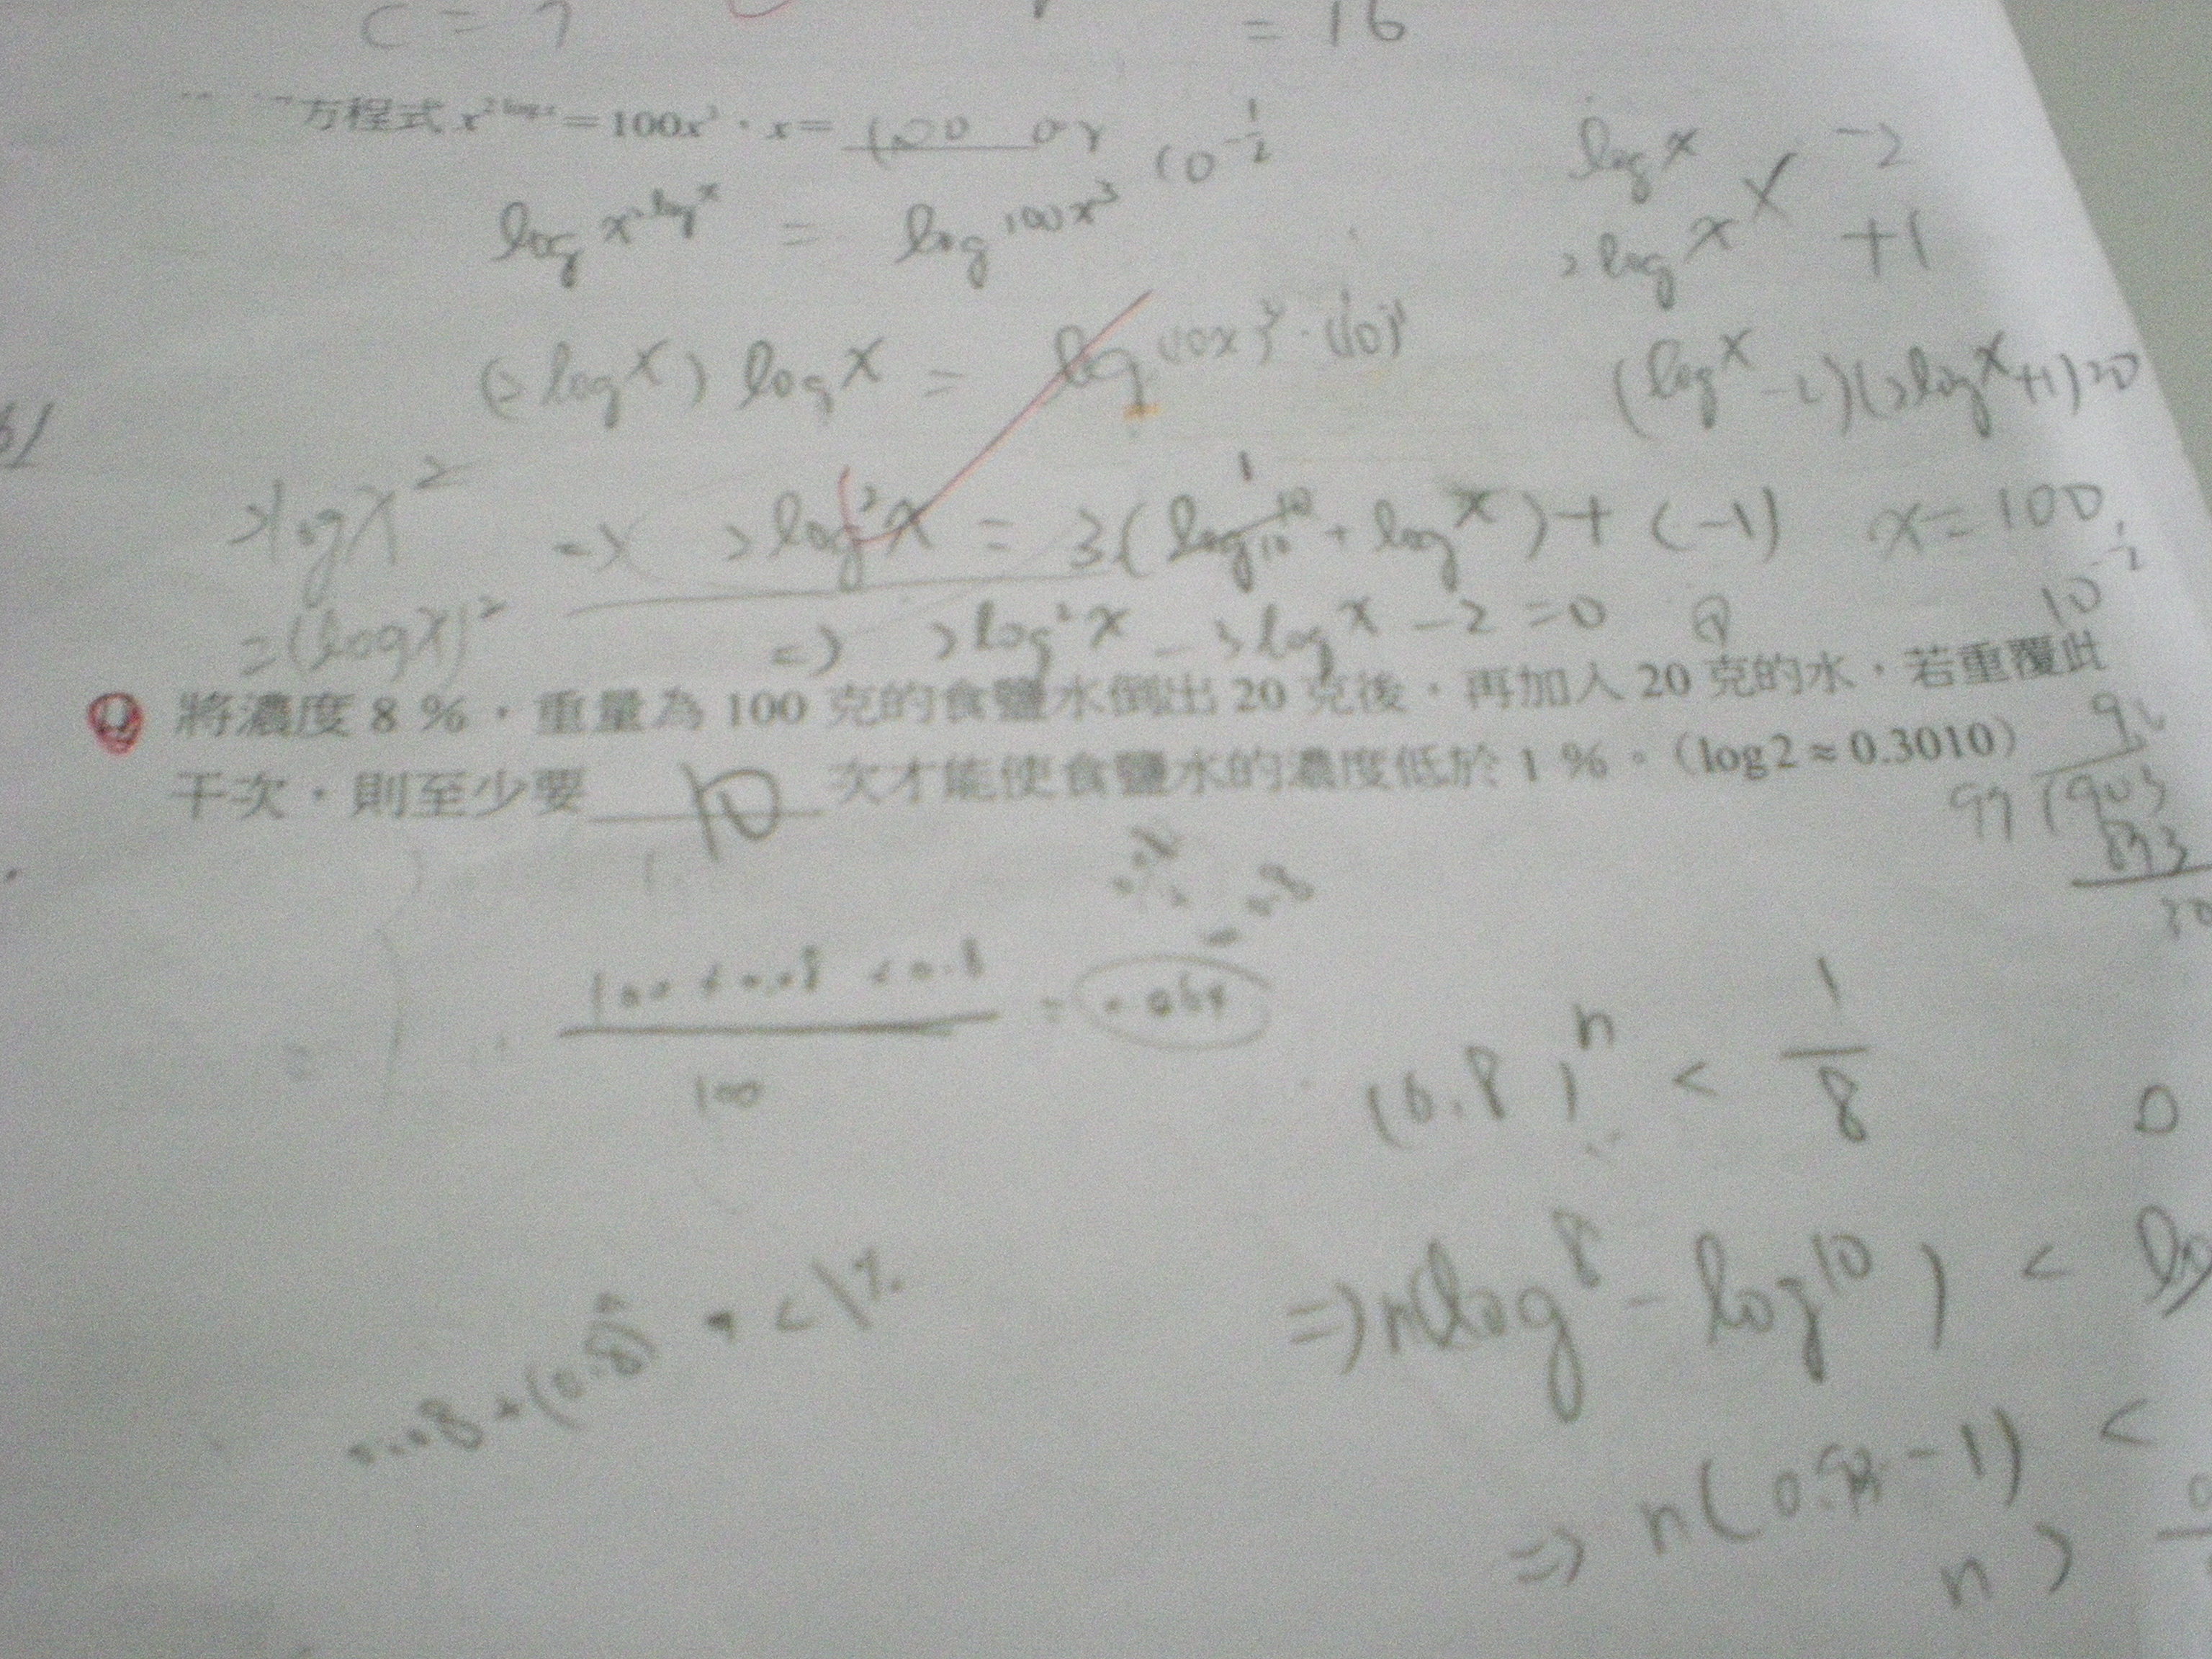 C = 7
= 16
方程式 x^{2 log x} = 100x³，x = 100 or 10^{-1/2}
log x^{2 log x} = log 100x³
(2 log x) log x = log (10x)³ · (10)
2 log²x = 3 (log 10 + log x) + (-1)
2 log x²
= (log x)²
=> 2 log²x - 3 log x - 2 = 0
log x -2
2 log x +1
(log x - 2)(2 log x + 1) = 0
x = 100,
10^{-1/2}
將濃度 8 %，重量為 100 克的食鹽水倒出 20 克後，再加入 20 克的水，若重覆此
干次，則至少要 10 次才能使食鹽水的濃度低於 1 %。（log2 ≈ 0.3010）
97 903
873
30
100 × 0.08 × 0.8
100
= 0.064
0.08 × (0.8)ⁿ < 1%
(0.8)ⁿ < 1/8
=> n(log 8 - log 10) < log
=> n(0.903 - 1) <
n >